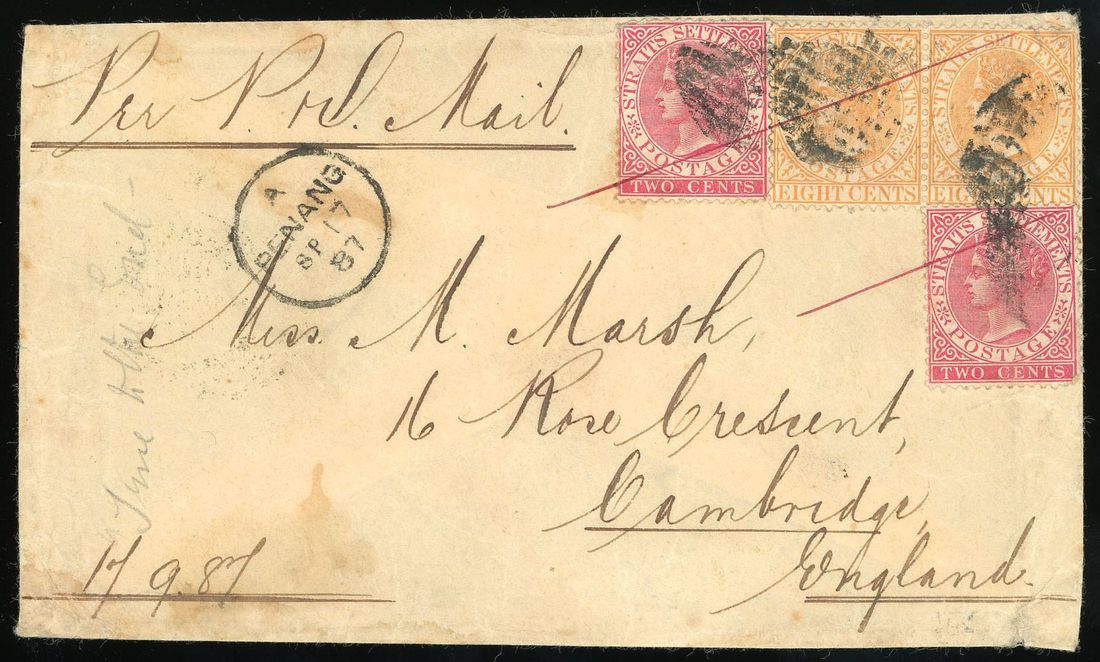 Per P. & O. Mail.
STRAITS SETTLEMENTS
POSTAGE
TWO CENTS
STRAITS SETTLEMENTS
POSTAGE
EIGHT CENTS
STRAITS SETTLEMENTS
POSTAGE
EIGHT CENTS
STRAITS SETTLEMENTS
POSTAGE
TWO CENTS
A
PENANG
SP 17
87
Miss. M. Marsh,
16 Rose Crescent,
Cambridge,
England.
17.9.87